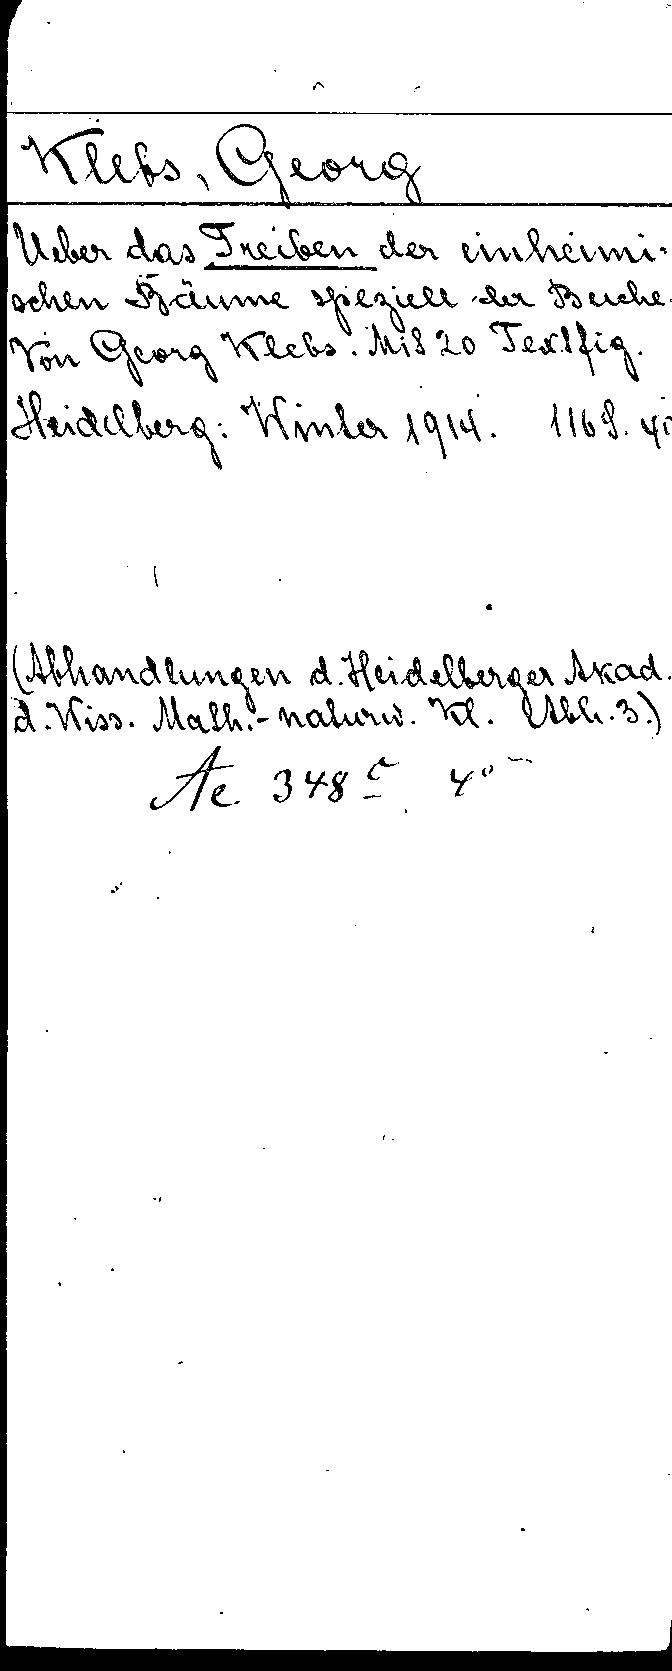 Klebs, Georg
Ueber das Treiben der einheimi-
schen Bäume speziell der Buche
Von Georg Klebs. Mit 20 Textfig.
Heidelberg: Winter 1914. 116 S. 4°
(Abhandlungen d. Heidelberger Akad.
d. Wiss. Math.-naturw. Kl. Abh. 3.)
Ac 348 c 4°